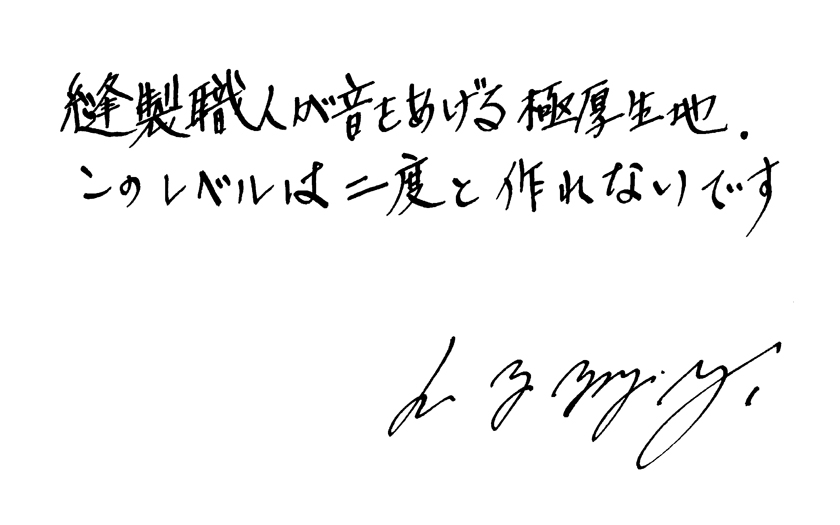 縫製職人が音をあげる極厚生地.
このレベルは二度と作れないです